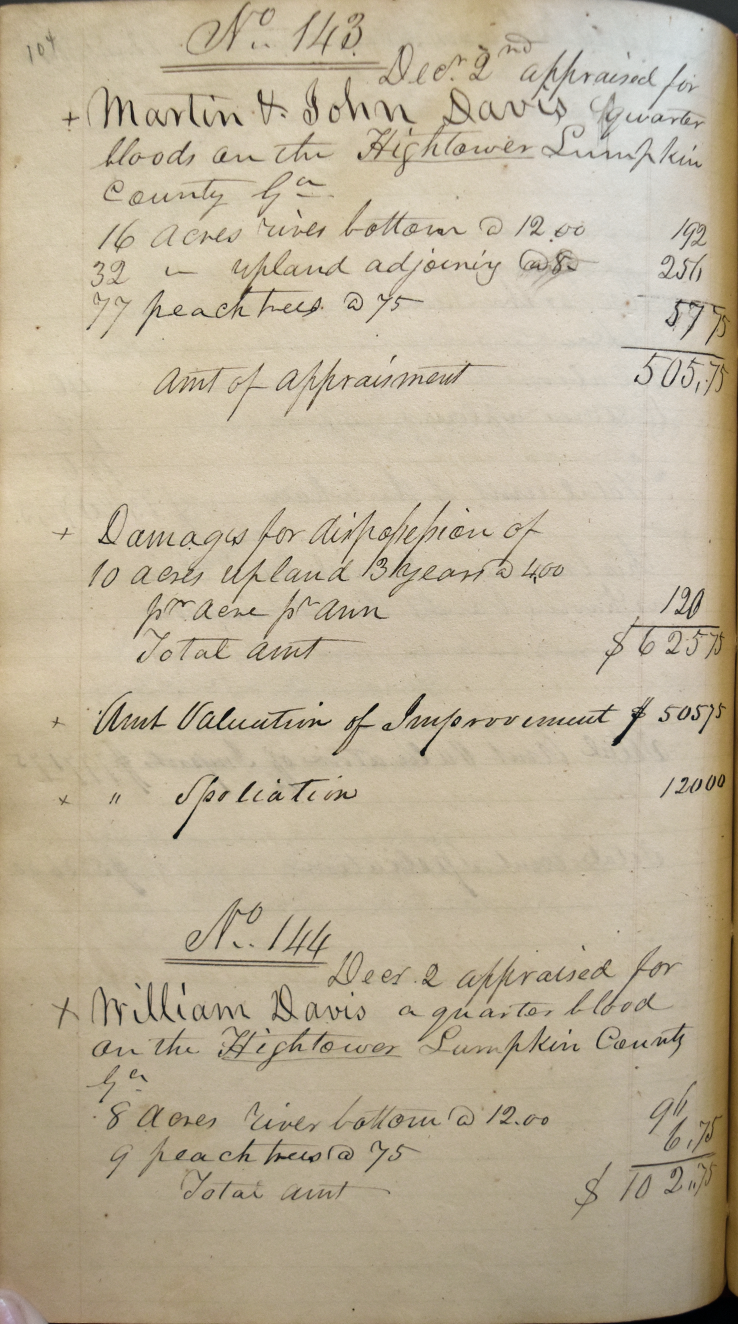 104
No. 143
Decr. 2nd appraised for
+ Martin & John Davis quarter
bloods on the Hightower Lumpkin
County Ga
16 acres river bottom @ 12.00 192
32 " upland adjoining @ 8 256
77 peach trees @ 75 57 75
Amt of appraisment 505,75
+ Damages for dispossession of
10 acres upland 3 years @ 4,00
pr acre pr ann 120
Total amt $ 625 75
+ Amt Valuation of Improvement $ 505 75
+ " Spoliation 120 00
No. 144
Decr. 2 appraised for
+ William Davis a quarter blood
on the Hightower Lumpkin County
Ga
8 acres river bottom @ 12.00 96
9 peach trees @ 75 6,75
Total amt $ 102,75